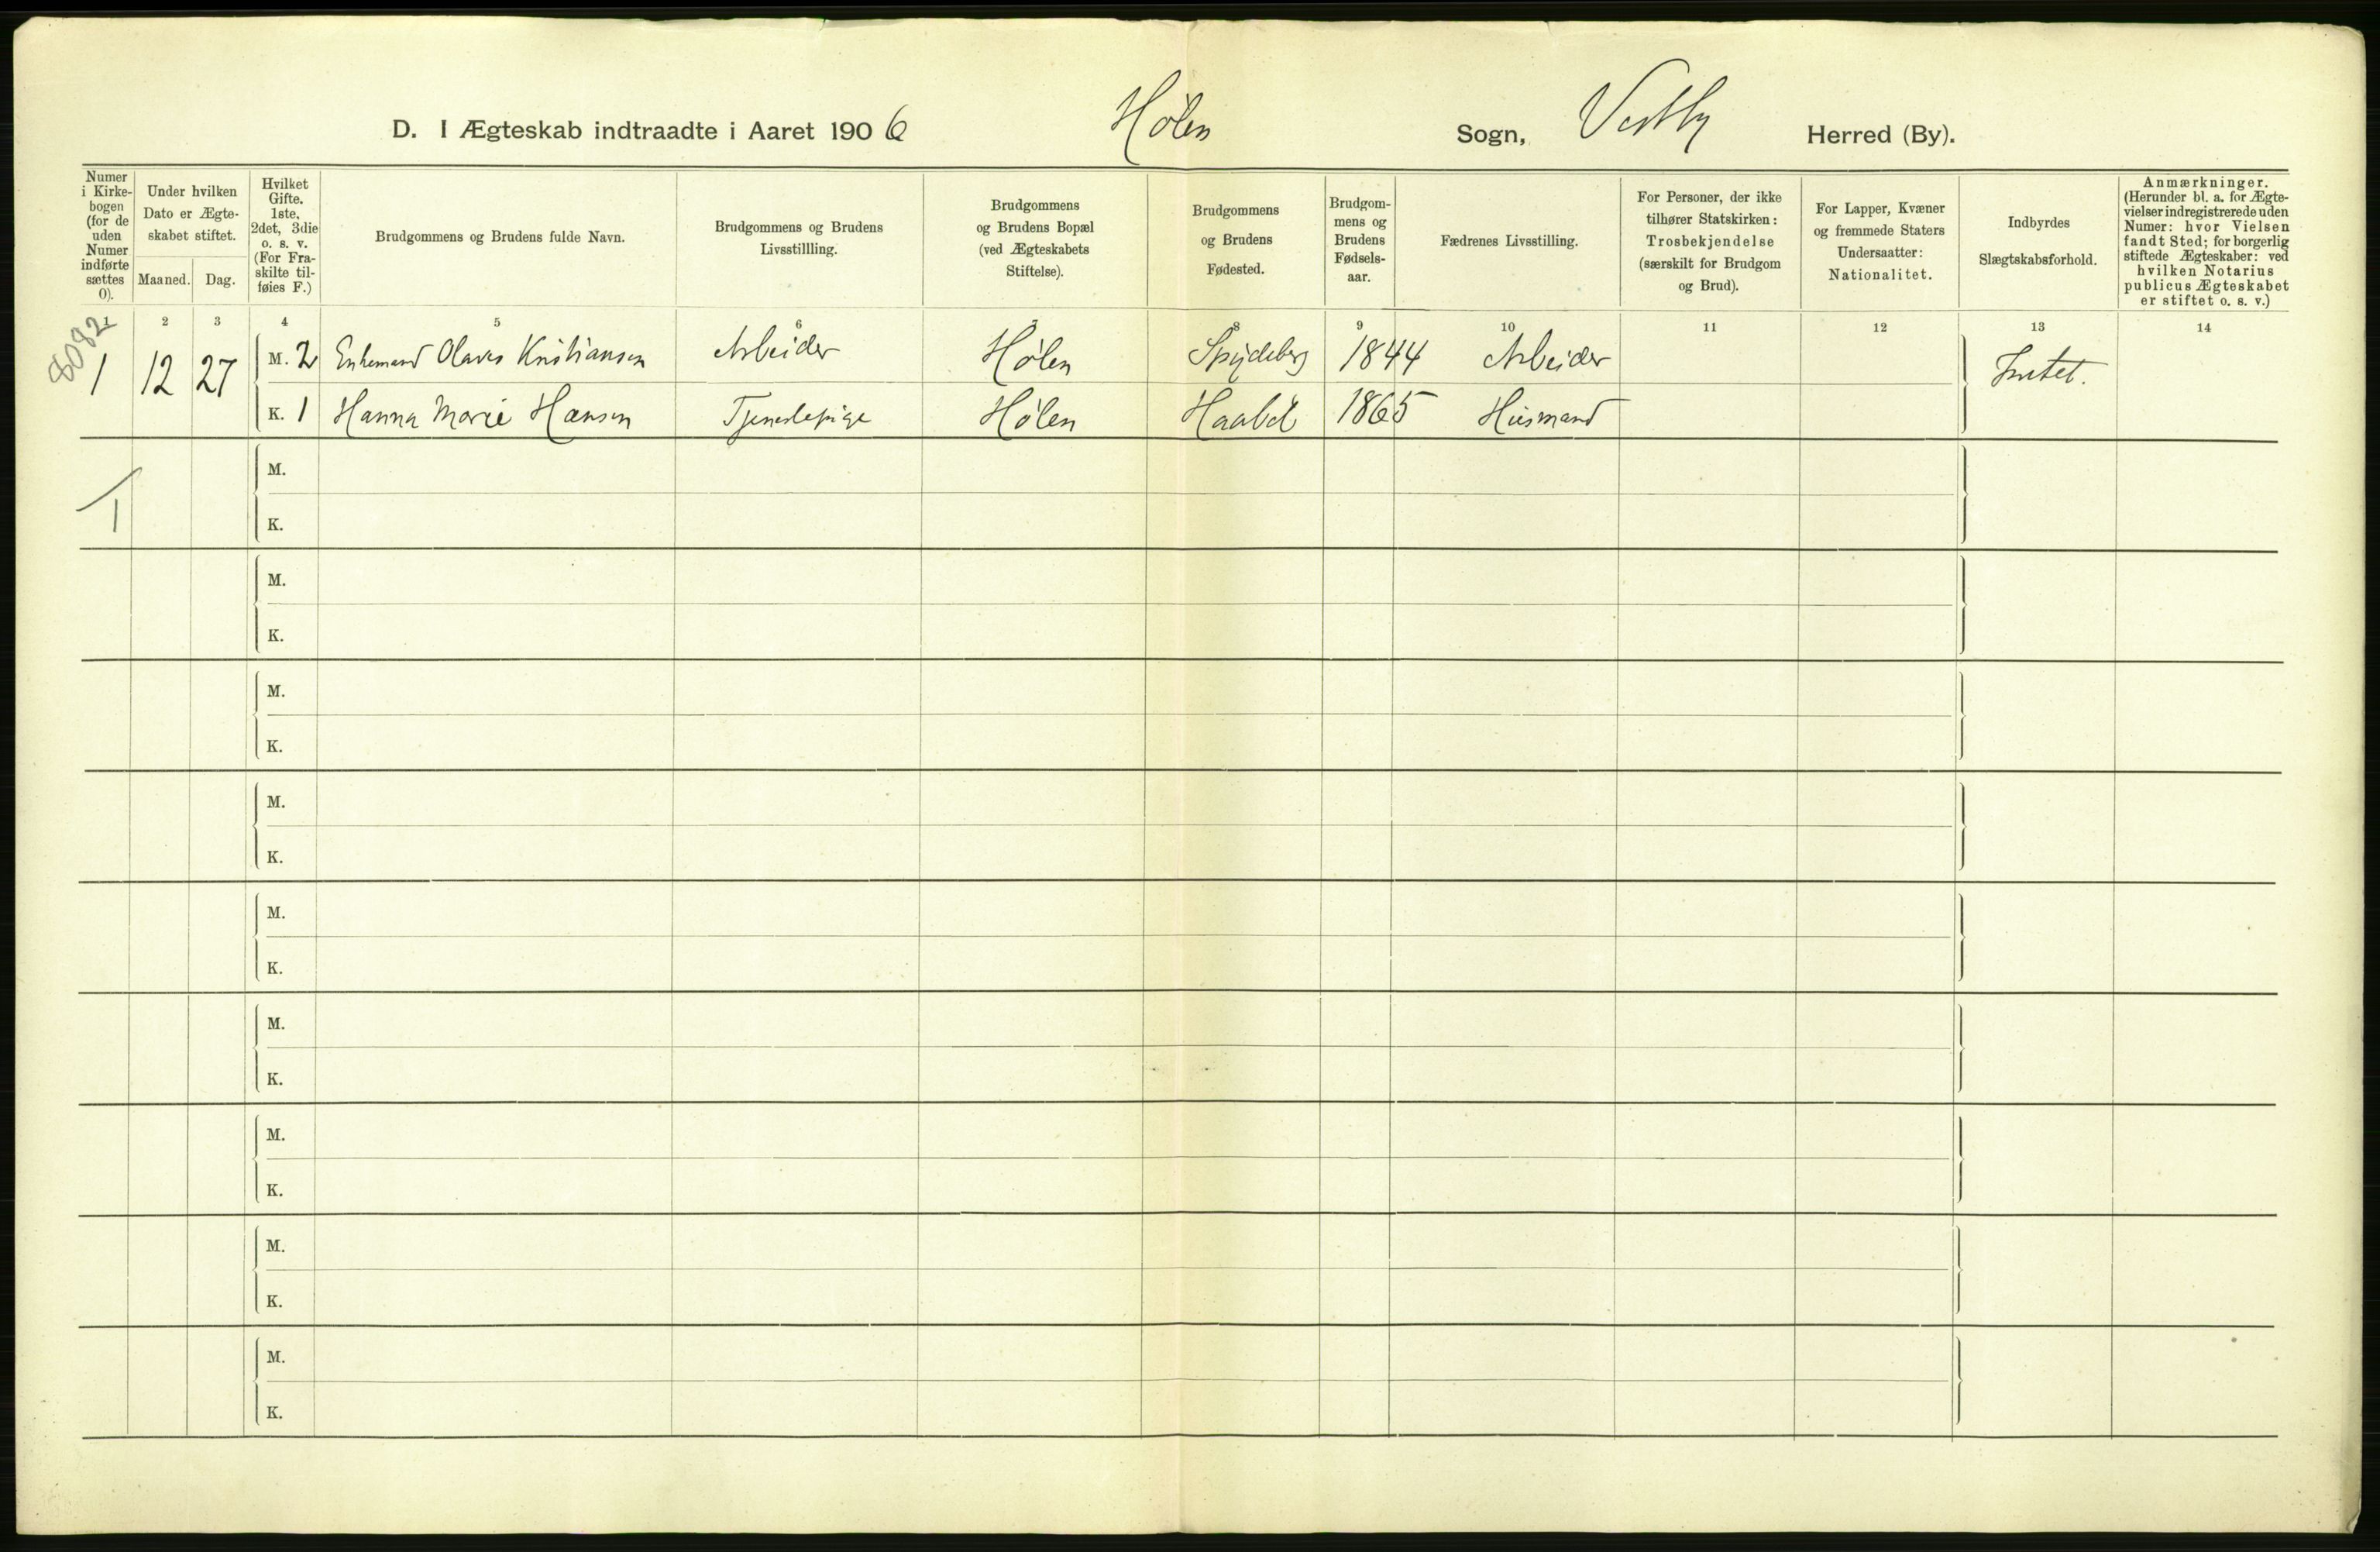 D. I Ægteskab indtraadte i Aaret 1906 Hølen Sogn, Vestby Herred (By).
Numer
i Kirke-
bogen
(for de
uden
Numer
indførte
sættes
0).
Under hvilken
Dato er Ægte-
skabet stiftet.
Maaned. Dag.
Hvilket
Gifte.
1ste,
2det, 3die
o. s. v.
(For Fra-
skilte til-
føies F.)
Brudgommens og Brudens fulde Navn.
Brudgommens og Brudens
Livsstillling.
Brudgommens
og Brudens Bopæl
(ved Ægteskabets
Stiftelse).
Brudgommens
og Brudens
Fødested.
Brudgom-
mens og
Brudens
Fødsels-
aar.
Fædrenes Livsstilling.
For Personer, der ikke
tilhører Statskirken:
Trosbekjendelse
(særskilt for Brudgom
og Brud).
For Lapper, Kvæner
og fremmede Staters
Undersaatter:
Nationalitet.
Indbyrdes
Slægtskabsforhold.
Anmærkninger.
(Herunder bl. a. for Ægte-
vielser indregistrerede uden
Numer: hvor Vielsen
fandt Sted; for borgerlig
stiftede Ægteskaber: ved
hvilken Notarius
publicus Ægteskabet
er stiftet o. s. v.)
1 2 3 4 5 6 7 8 9 10 11 12 13 14
8082
1 12 27 M. 2 Enkemand Olaves Kristiansen Arbeider Hølen Spydeberg 1844 Arbeider Intet.
K. 1 Hanna Marie Hansen Tjenestepige Hølen Haabøl 1865 Husmand
M.
1
K.
M.
K.
M.
K.
M.
K.
M.
K.
M.
K.
M.
K.
M.
K.
M.
K.